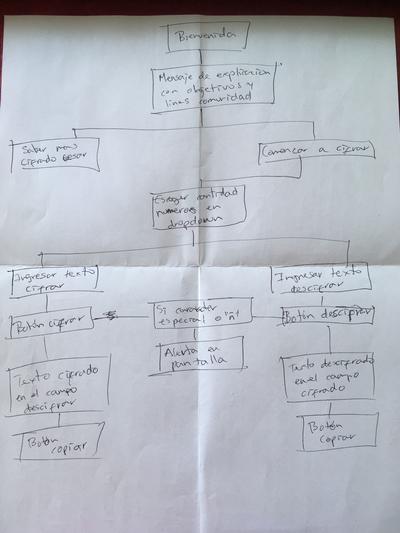 Bienvenida
Mensaje de explicacion
con objetivos y
lines comunidad
Saber mas
cifrado cesar
Comenzar a cifrar
Escoger cantidad
numeros en
dropdown
Ingresar texto
cifrar
Ingresar texto
descifrar
Botón cifrar
Si caracter
especial o "ñ"
Botón descifrar
Alerta en
pantalla
Texto cifrado
en el campo
descifrar
Texto descifrado
en el campo
cifrado
Botón
copiar
Botón
copiar